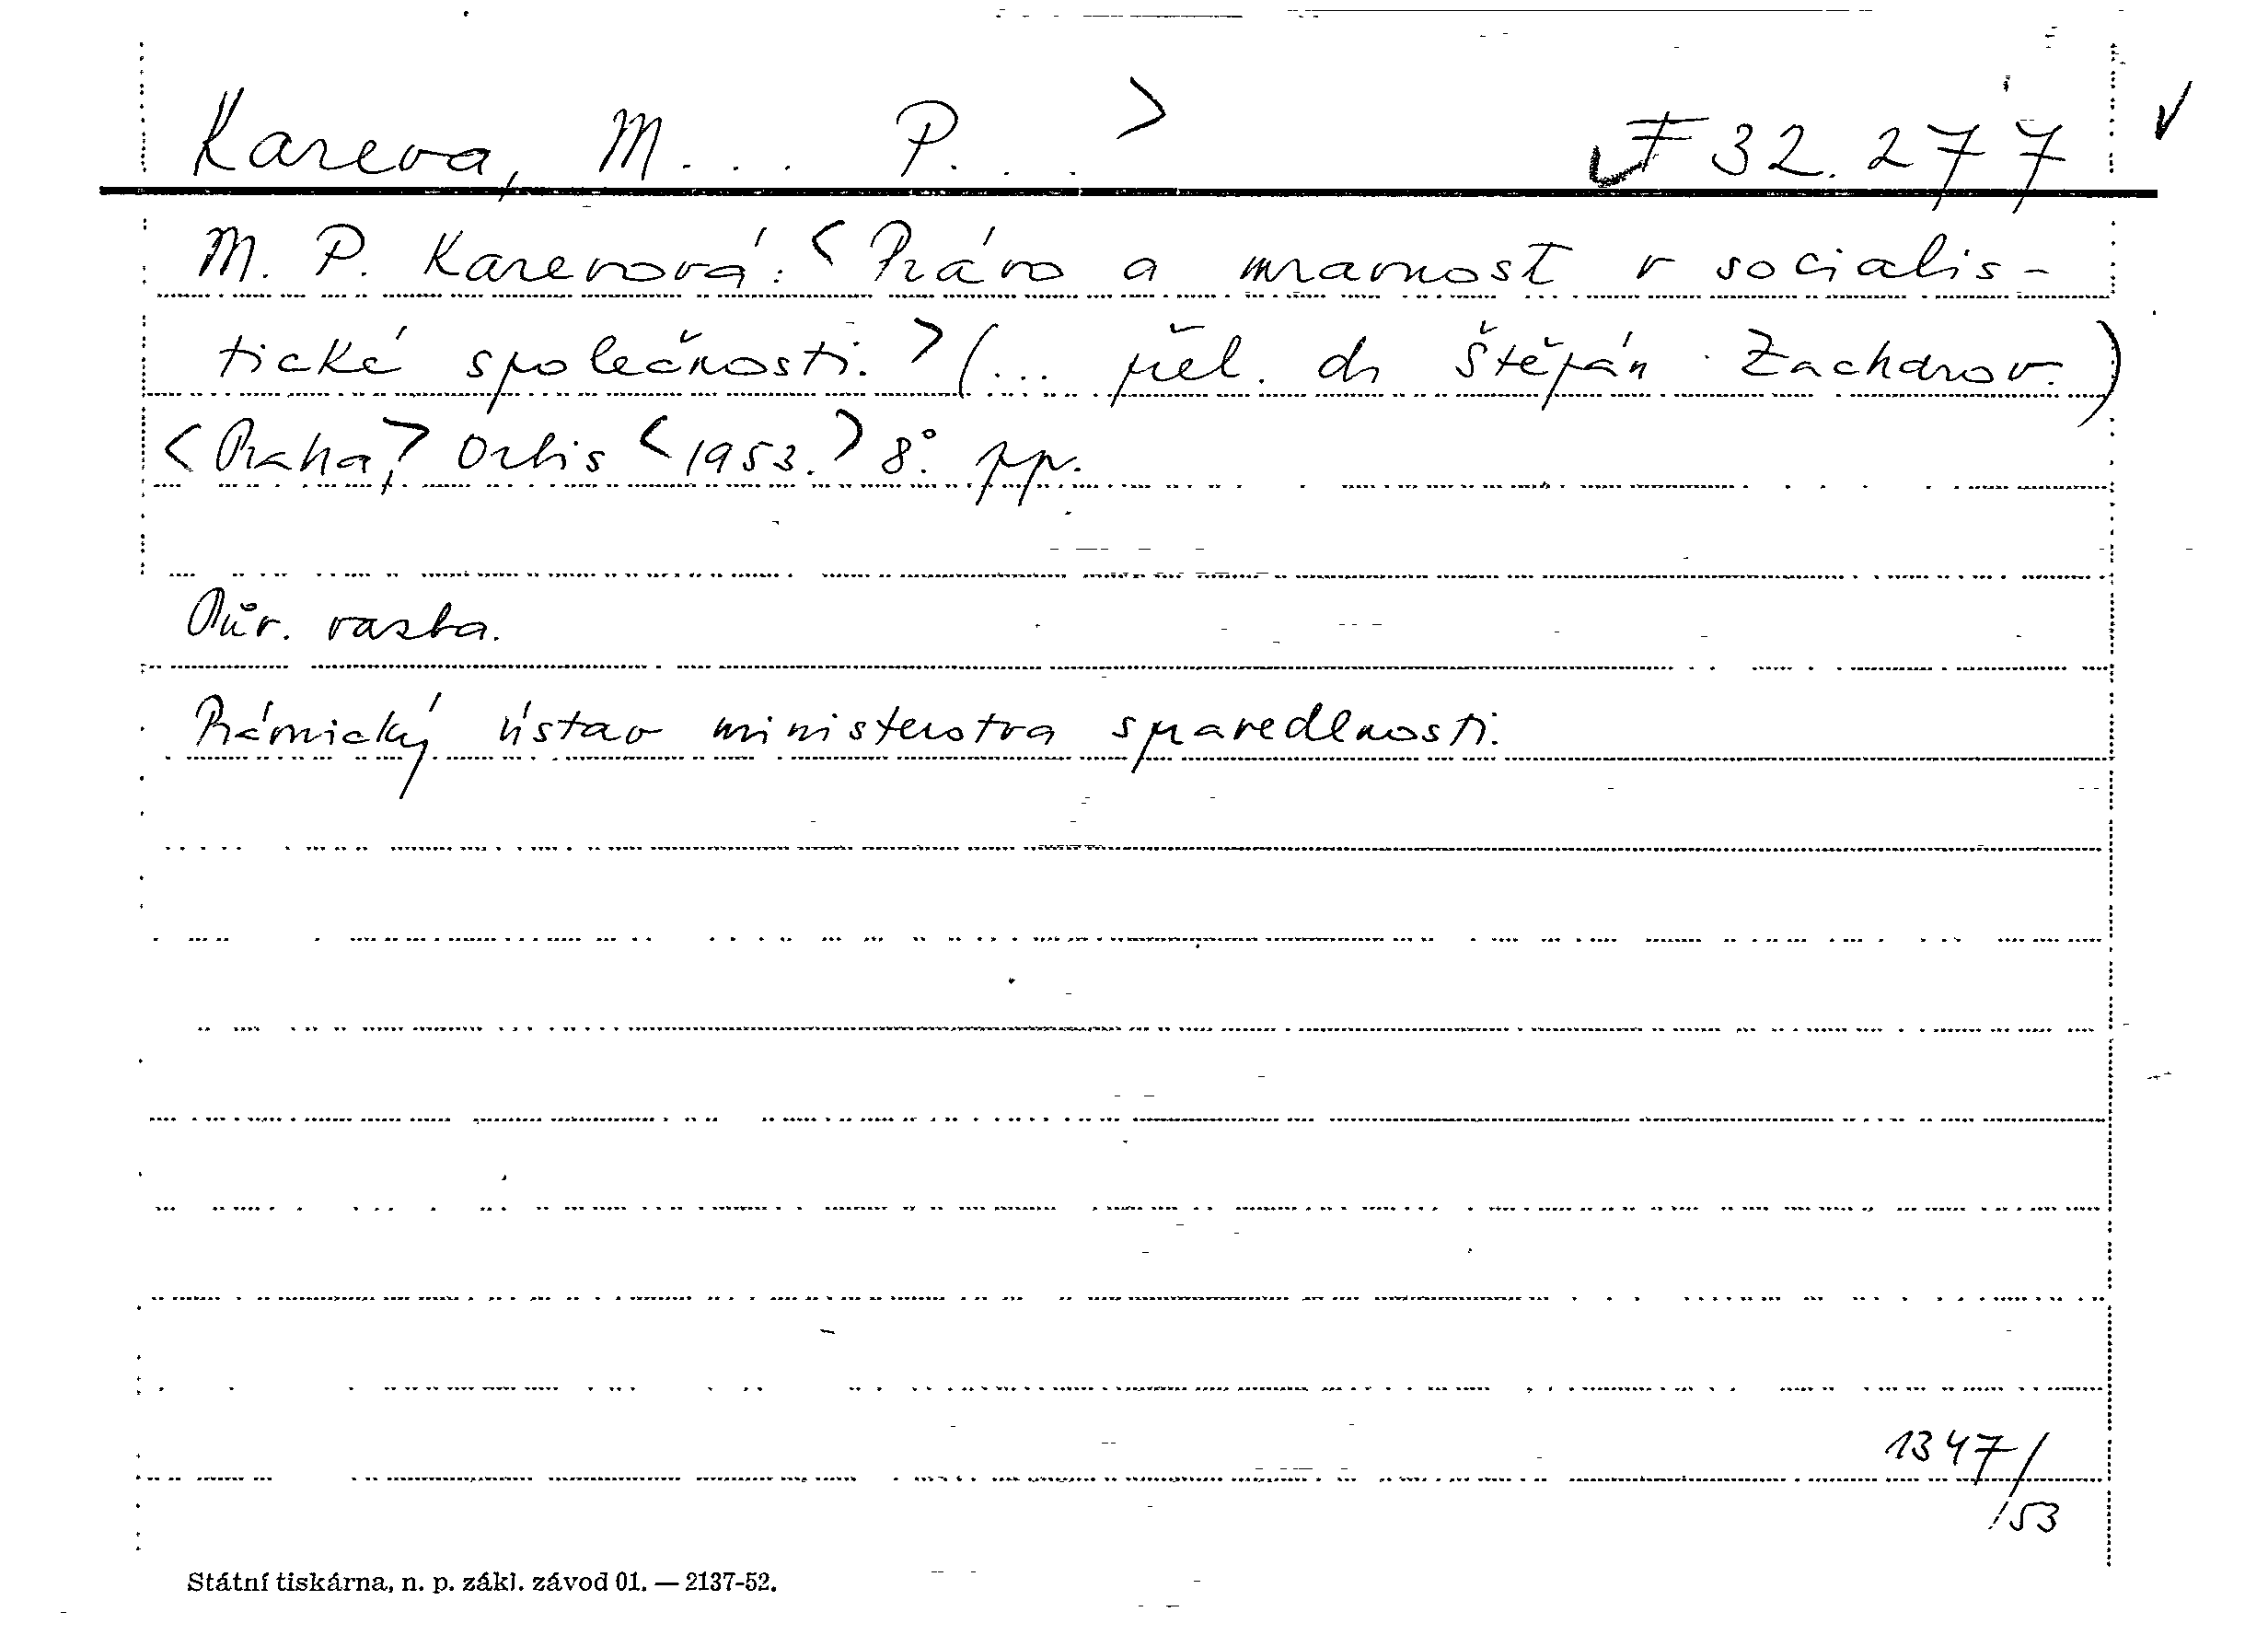 Kareva, M... P... > F 32.277 ✓
M. P. Karevová: <Právo a mravnost v socialis-
tické společnosti.> (... přel. dr Štěpán Zacharov.)
<Praha,> Orbis <1953.> 8°. pp.
Pův. vazba.
Právnický ústav ministerstva spravedlnosti.
1347/
/53
Státní tiskárna, n. p. zákl. závod 01. — 2137-52.